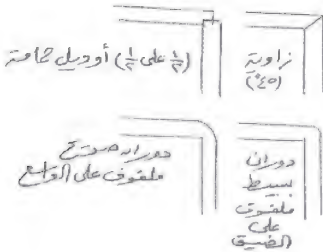 (١/٢ على ١/٢) أوديل حمامة
زاوية
(٤٥°)
دوران
ملفوف على الواسع
دوران
بسيط
ملفوف
على
الضيق